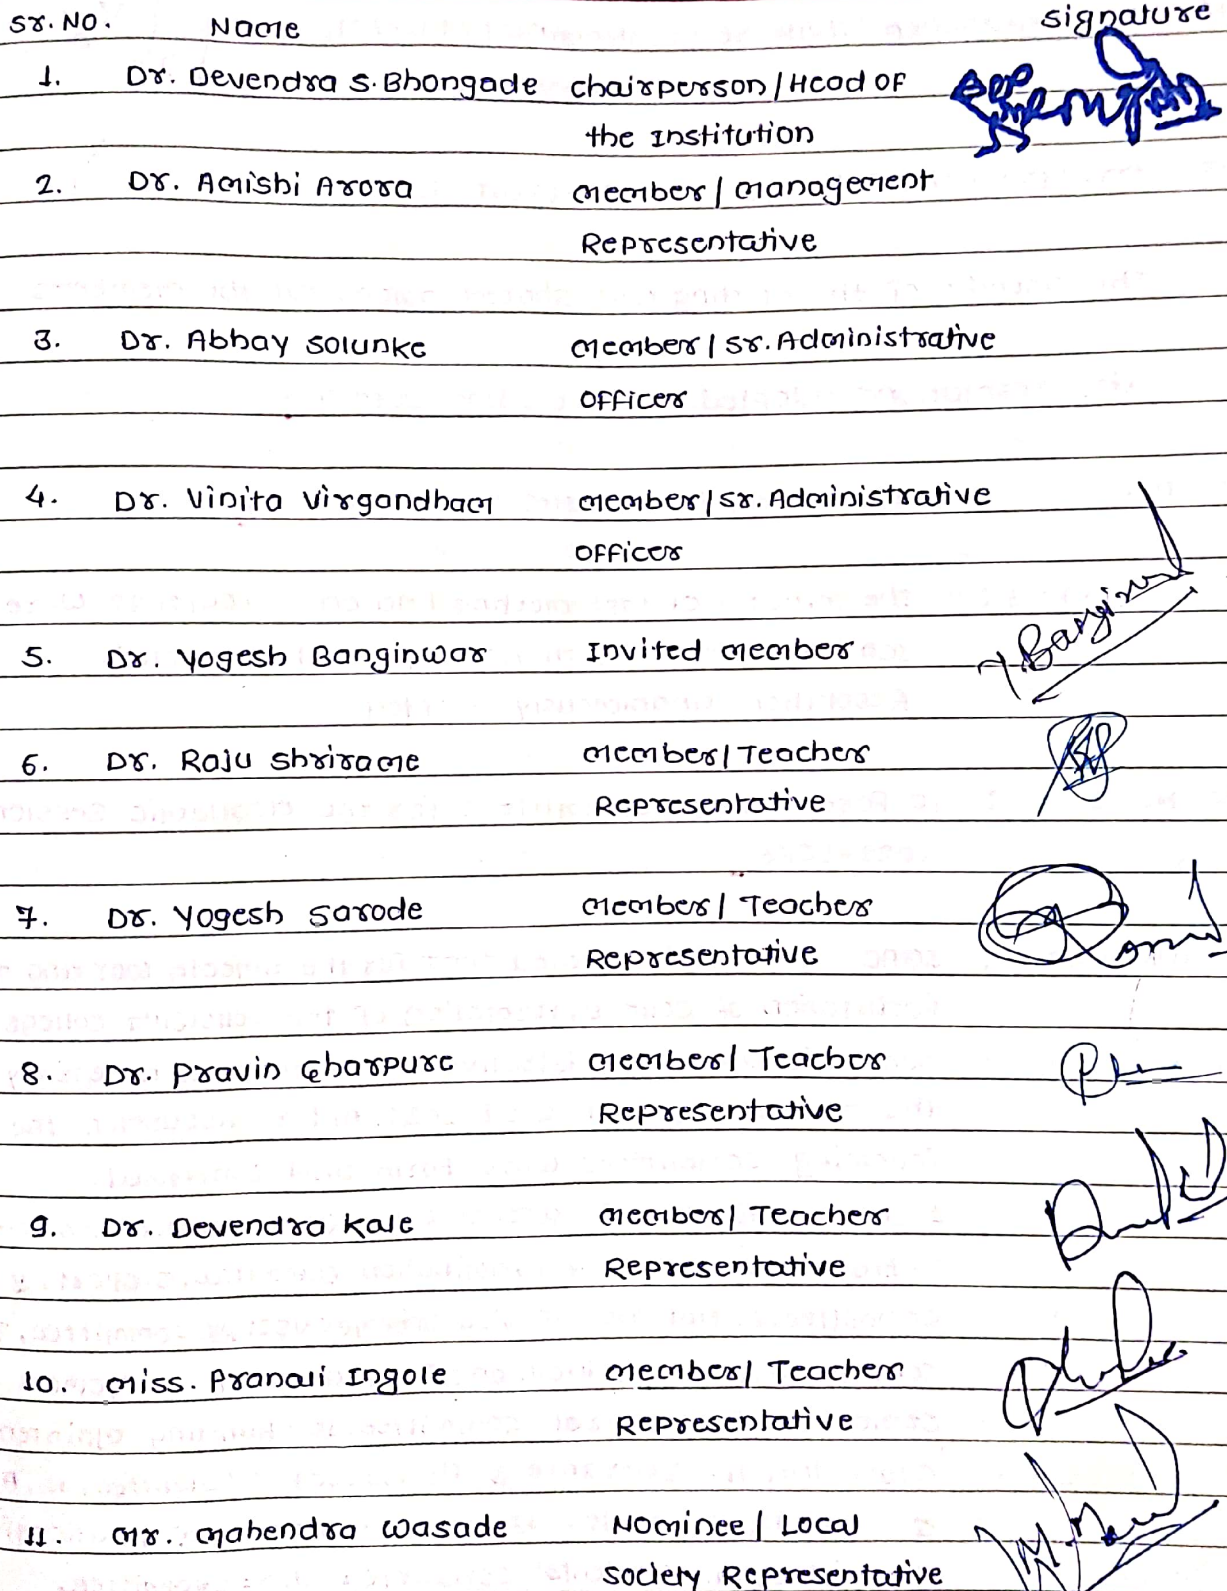 Sr. No. Name signature
1. Dr. Devendra S. Bhongade chairperson / Head of
the Institution
2. Dr. Amishi Arora member / management
Representative
3. Dr. Abhay Solunke member / sr. Administrative
officer
4. Dr. Vinita Virgandham member / sr. Administrative
officer
5. Dr. Yogesh Banginwar Invited member Y. Banginwar
6. Dr. Raju Shrirame member / Teacher
Representative
7. Dr. Yogesh Sarode member / Teacher
Representative
8. Dr. Pravin Gharpure member / Teacher
Representative
9. Dr. Devendra Kale member / Teacher
Representative
10. miss. Pranali Ingole member / Teacher
Representative
11. mr. mahendra wasade Nominee / Local
society Representative